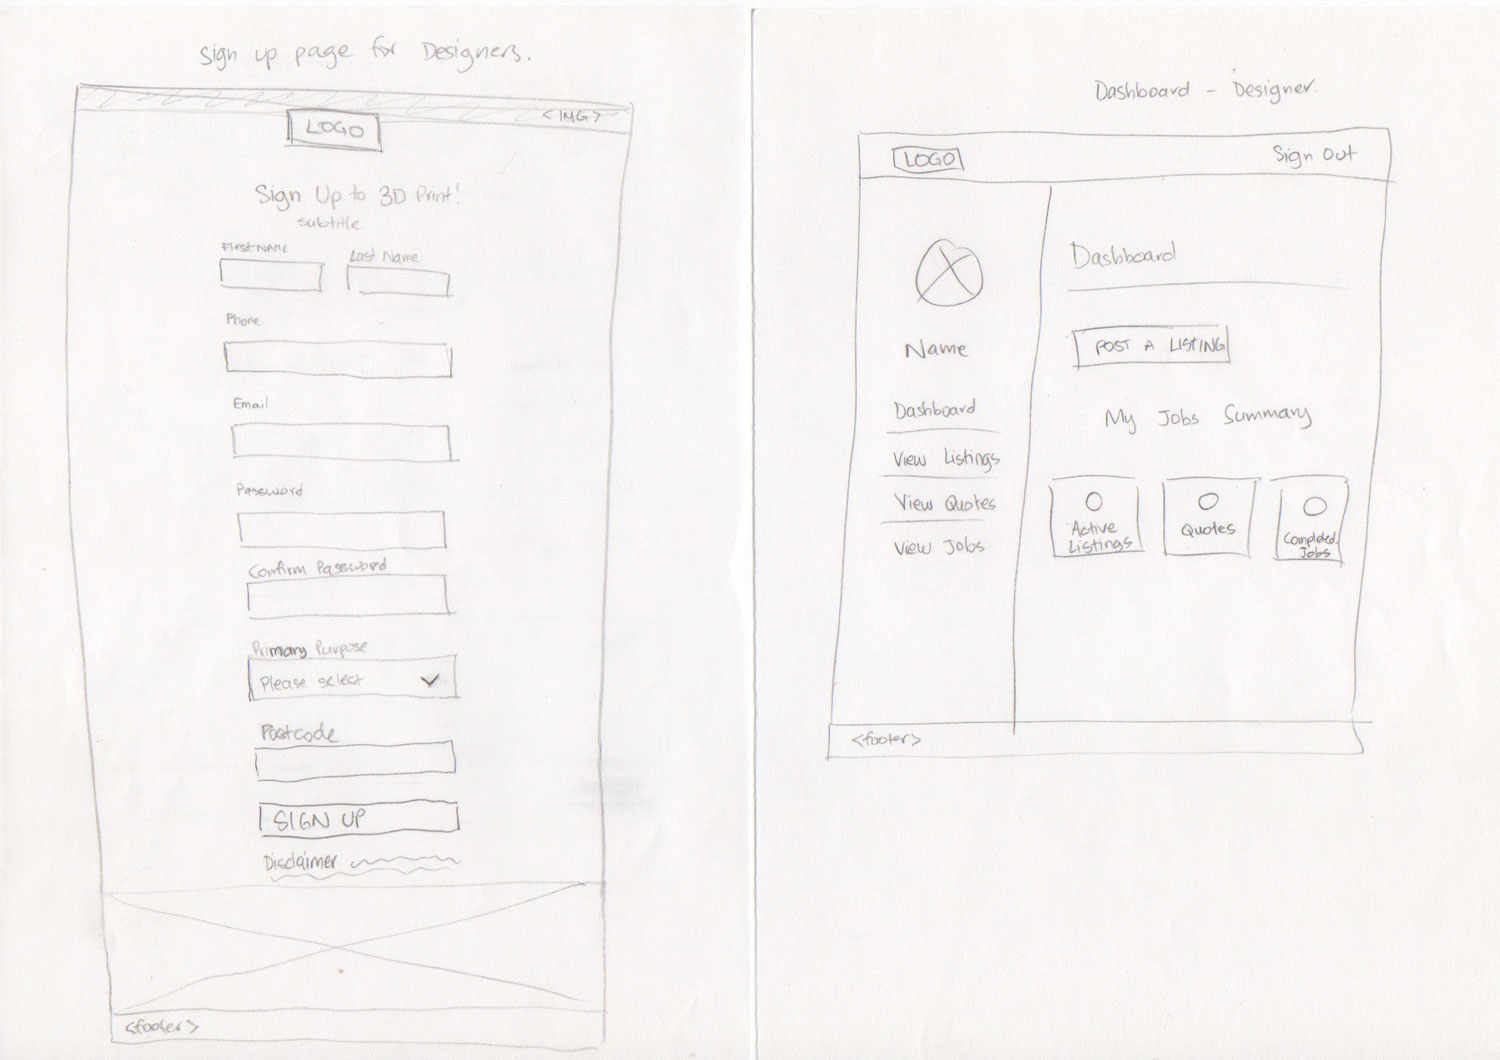 Sign up page for Designers.
<IMG>
LOGO
Sign Up to 3D Print!
subtitle
First NAME
Last Name
Phone
Email
Password
Confirm Password
Primary Purpose
Please select
Postcode
SIGN UP
Disclaimer
<footer>
Dashboard - Designer.
LOGO
Sign Out
Name
Dashboard
View Listings
View Quotes
View Jobs
Dashboard
POST A LISTING
My Jobs Summary
0
Active
Listings
0
Quotes
0
Completed
Jobs
<footer>